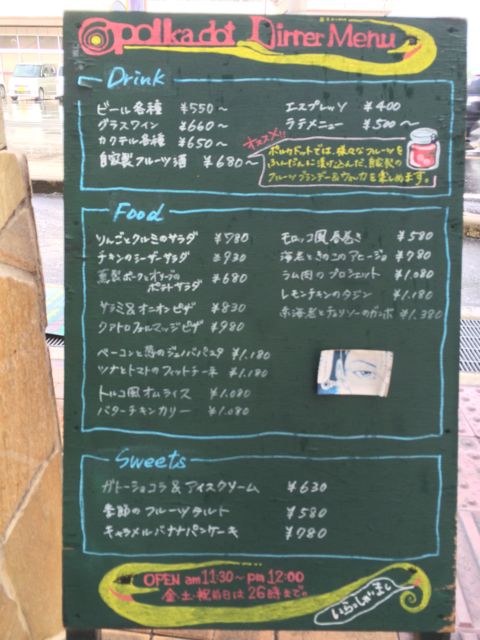 polka dot Dinner Menu
Drink
ビール各種 ¥550〜
グラスワイン ¥660〜
カクテル各種 ¥650〜
自家製フルーツ酒 ¥680〜
エスプレッソ ¥400
ラテメニュー ¥500〜
オススメ!!
ポルカドットでは、様々なフルーツを
ふんだんに漬け込んだ、自家製の
フルーツブランデー&ウォッカを楽しめます。
Food
りんごとクルミのサラダ ¥780
チキンのシーザーサラダ ¥930
燻製ポークとオリーブの
ポテトサラダ ¥680
サラミ&オニオンピザ ¥830
クアトロフォルマッジピザ ¥980
ベーコンと茄のジェノバパスタ ¥1.180
ツナとトマトのフィットチーネ ¥1.180
トルコ風オムライス ¥1.080
バターチキンカリー ¥1.080
モロッコ風春巻き ¥580
海老ときのこのアヒージョ ¥780
ラム肉のブロシェット ¥1.080
レモンチキンのタジン ¥1.180
赤海老とチョリソーのガンボ ¥1.380
Sweets
ガトーショコラ&アイスクリーム ¥630
季節のフルーツタルト ¥580
キャラメルバナナパンケーキ ¥780
OPEN am11:30〜pm12:00
金・土・祝前日は26時まで。
いらっしゃいませ